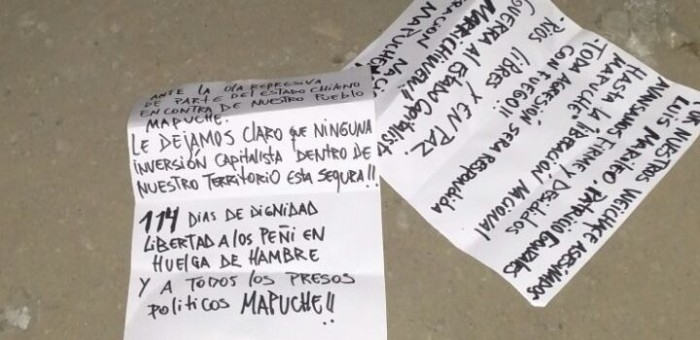 ANTE LA OLA REPRESIVA
DE PARTE DEL ESTADO CHILENO
EN CONTRA DE NUESTRO PUEBLO
MAPUCHE.
LE DEJAMOS CLARO QUE NINGUNA
INVERSIÓN CAPITALISTA DENTRO DE
NUESTRO TERRITORIO ESTA SEGURA!!
114 DIAS DE DIGNIDAD
LIBERTAD A LOS PEÑI EN
HUELGA DE HAMBRE
Y A TODOS LOS PRESOS
POLITICOS MAPUCHE!!
NUESTROS WEICHAFE ASESINADOS
LUIS MARILEO PATRICIO GONZALES
AVANSAMOS FIRME Y DESIDIDOS
HASTA LA LIBERACION NACIONAL
MAPUCHE
TODA AGRESIÓN SERA RESPONDIDA
CON FUEGO!!
RIOS LIBRES Y EN PAZ.
GUERRA AL ESTADO CAPITALISTA
MARRICHIWEU!
RACION NACI
MAPUCHE